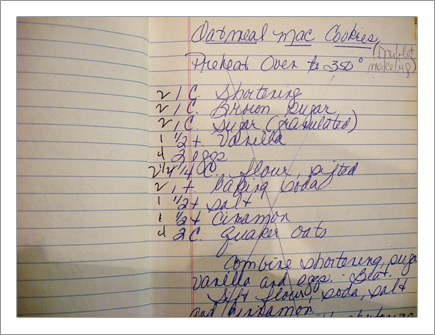 Oatmeal Mac Cookies
(Doubled
Preheat Over to 350°
2 1 C. Shortening
2 1 C. Brown Sugar
2 1 C. Sugar (granulated)
1 1/2 t. Vanilla
4 2 eggs
C. flour, sifted
2 1 t. Baking Soda
1 1/2 t Salt
1 1/2 t Cinnamon
4 2 C. Quaker Oats
Combine shortening, sugar
Vanilla and eggs. Beat.
Sift flour, soda, salt
and cinnamon.